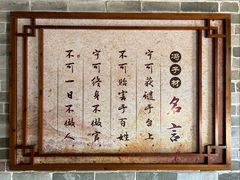 冯子材
名言
宁可获谴于台上
不可贻害于百姓
宁可终身不做官
不可一日不做人